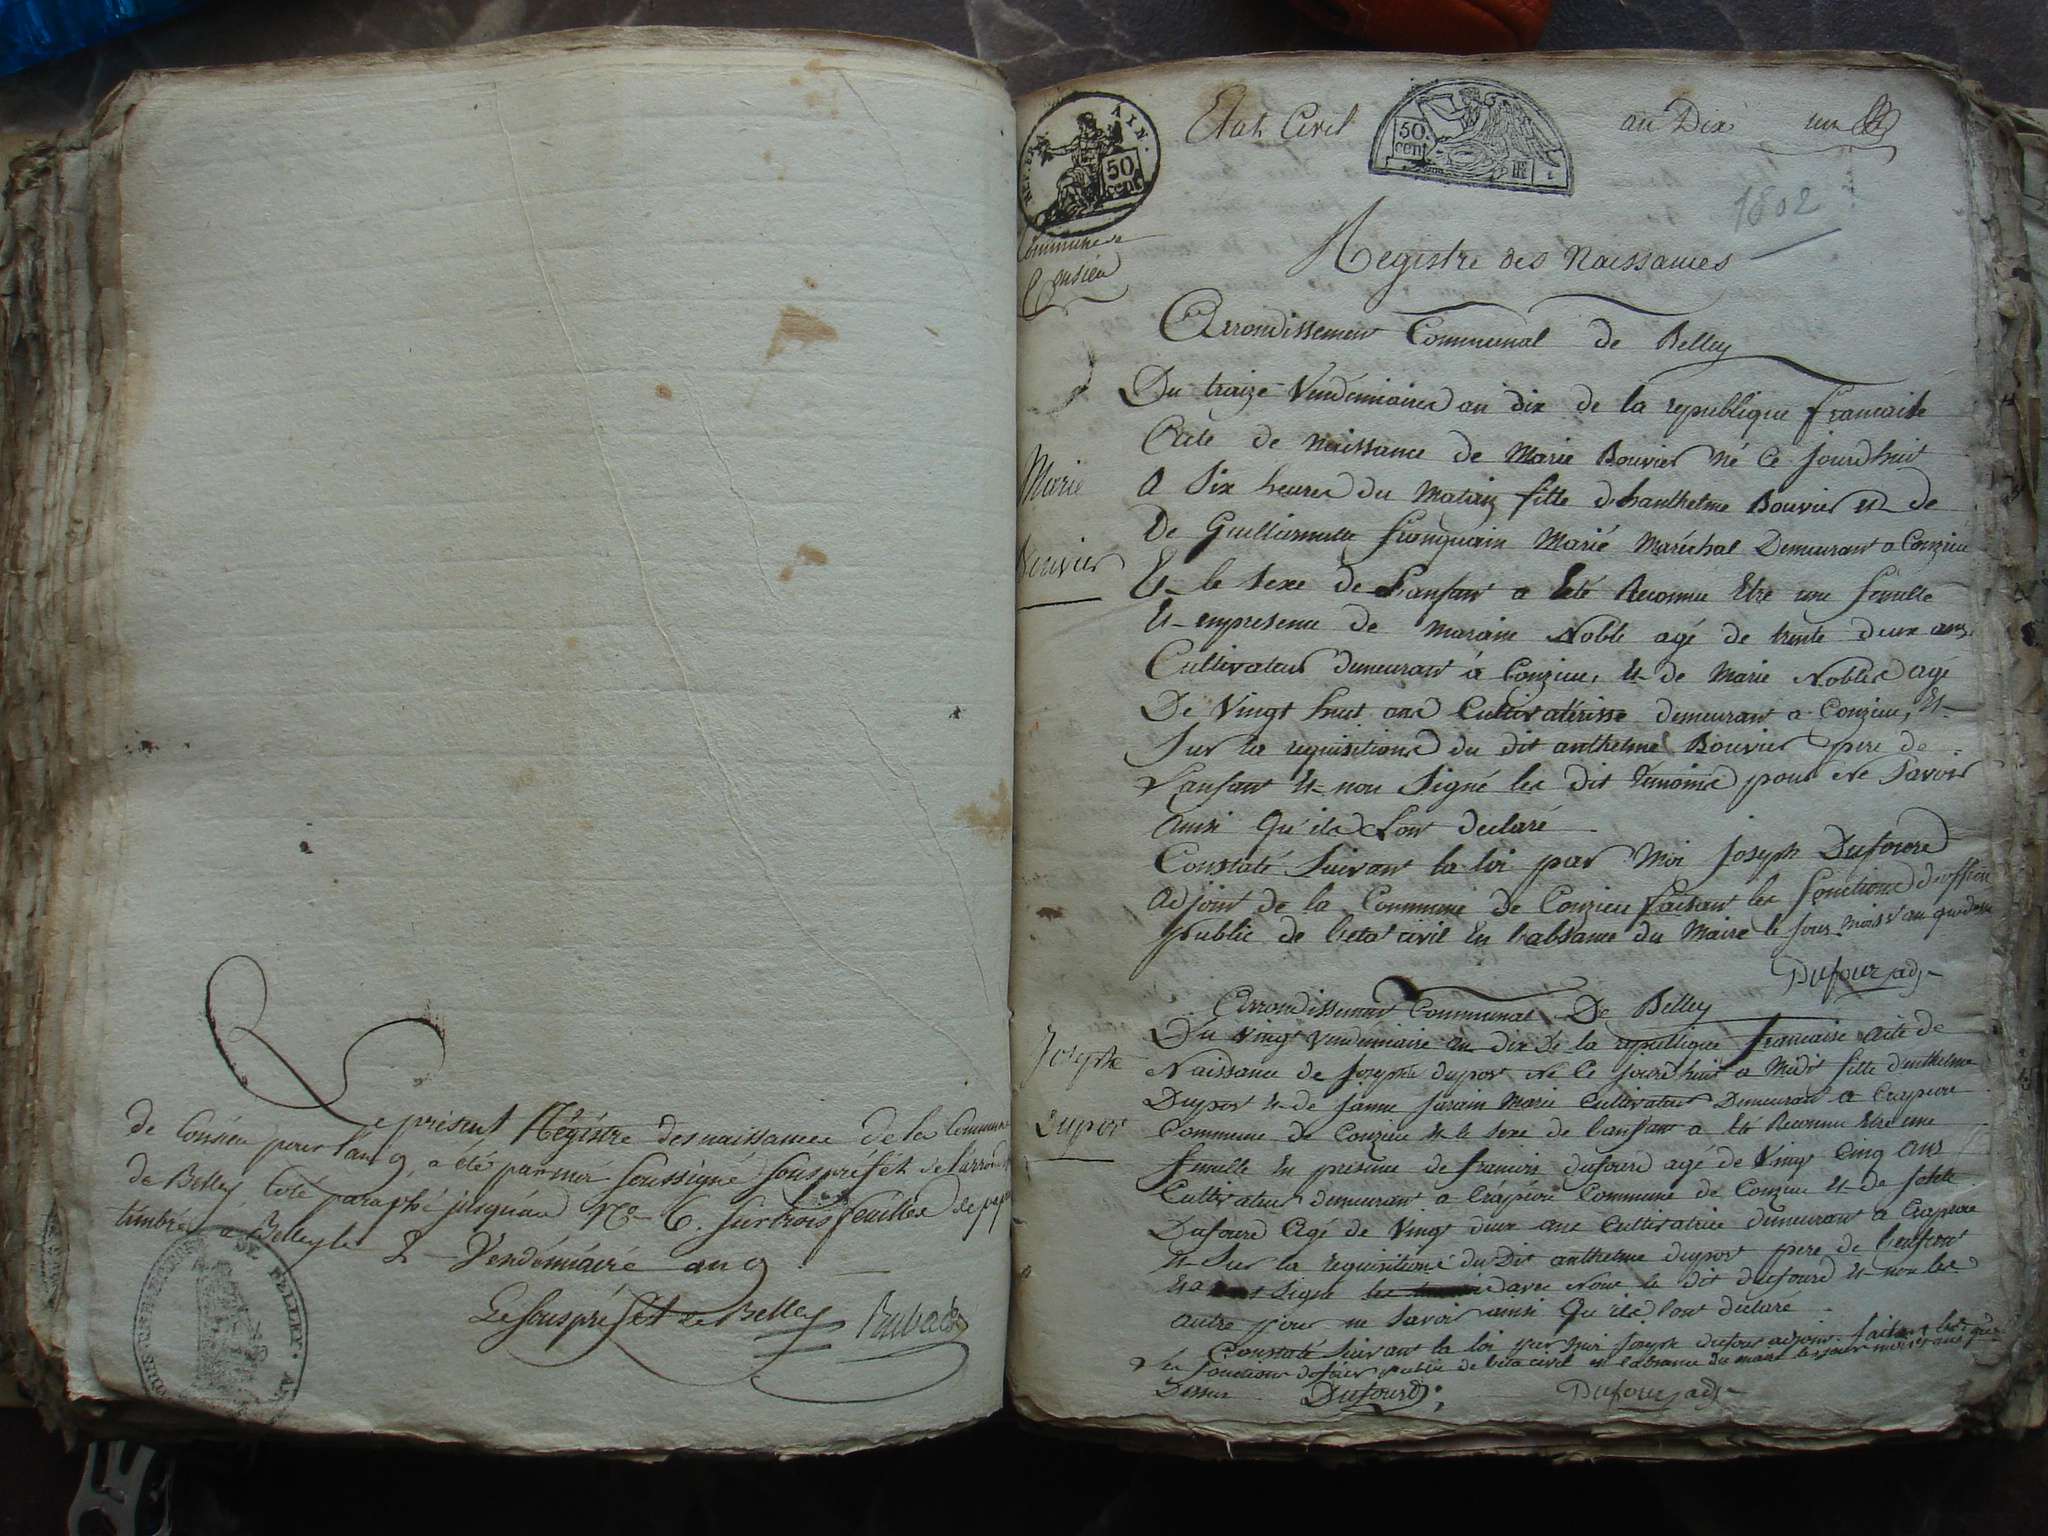 Le présent Régistre des naissances de la Commune
de Consieu pour l'an 9, a été par moi soussigné souspréfét de l'arrond
de Belley coté paraphé jusquau No 6. sur trois feuilles de pap
timbré à Belley le 2 Vendémiaire an 9
Le souspréfét de Belley
DE BELLEY
REP. FRA
AIN.
50
cent
Etat Civil
50
cent
RF
au Dix
un
1802
Commune de
Consieu
Registre des Naissances
Arrondissement Communal de Belley
Du traize Vendemiaire an dix de la republique francaise
Marie
Bouvier
Acte de Naissance de Marie Bouvier né Ce jourdhuit
a Six heures du Matain fille dhanthelme Bouvier et de
De Guilliermette Marié Maréchal Demeurant a Conzieu
Et le sexe de Lanfant a Eté Reconnu Etre une femelle
Et empresence de Noble agé de trente deux ans
Cultivateur demeurant a Conzieu, Et de Marie Noble agé
De Vingt huit ans Cultivaterisse demeurant a Conzieu, Et
Sur la requisitions du dit anthelme Bouvier pere de
Lanfant Et non Signé les dit temoins pour Ne Savoir
ainsi Qu'ils Lont declaré
Constaté Suivant la loi par Moi Joseph Dufourd
adjoint de la Commune de Conzieu faisant les fonctions
public de letat civil En labsance du Maire le jour Mois
Dufour adj
Arrondissement Communal De Belley
Joseph
Dupor
Du Vingt Vendemiaire an dix De la republique francaise acte de
Naissance de Dupor Né Ce jourdhuit a Midit fille danthelme
Dupor et de Janne Marié Cultivateur Demeurant a Crapieu
Commune de Conzieu et le sexe de lanfant a Eté Reconnu Etre une
femelle En presence de francois dufourd agé de Vingt Cinq ans
Cultivateur demeurant a Commune de Conzieu et de
Dufourd agé de Vingt deux ans Cultivatrice demeurant a
et Sur la requisitions du Dit anthelme dupor pere de lenfant
Signé avec Nous le dit dufourd et non les
autre pour ne Savoir ainsi Qu'ils lont declaré
Constaté Suivant la loi par Moi Joseph dufour adjoint faisant
les fonctions public de letat civil en labsence du maire le jour mois et an que
Dessus Dufourd Dufour adj